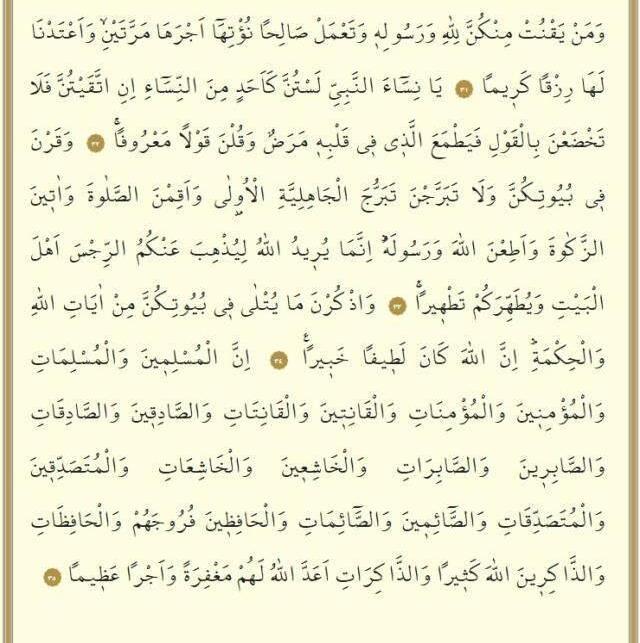 وَمَنْ يَقْنُتْ مِنْكُنَّ لِلّٰهِ وَرَسُولِهٖ وَتَعْمَلْ صَالِحًا نُؤْتِهَٓا اَجْرَهَا مَرَّتَيْنِۙ وَاَعْتَدْنَا
لَهَا رِزْقًا كَرٖيمًا ٣١ يَا نِسَٓاءَ النَّبِيِّ لَسْتُنَّ كَاَحَدٍ مِنَ النِّسَٓاءِ اِنِ اتَّقَيْتُنَّ فَلَا
تَخْضَعْنَ بِالْقَوْلِ فَيَطْمَعَ الَّذٖي فٖي قَلْبِهٖ مَرَضٌ وَقُلْنَ قَوْلًا مَعْرُوفًاۚ ٣٢ وَقَرْنَ
فٖي بُيُوتِكُنَّ وَلَا تَبَرَّجْنَ تَبَرُّجَ الْجَاهِلِيَّةِ الْاُو۫لٰى وَاَقِمْنَ الصَّلٰوةَ وَاٰتٖينَ
الزَّكٰوةَ وَاَطِعْنَ اللّٰهَ وَرَسُولَهُۜ اِنَّمَا يُرٖيدُ اللّٰهُ لِيُذْهِبَ عَنْكُمُ الرِّجْسَ اَهْلَ
الْبَيْتِ وَيُطَهِّرَكُمْ تَطْهٖيرًاۚ ٣٣ وَاذْكُرْنَ مَا يُتْلٰى فٖي بُيُوتِكُنَّ مِنْ اٰيَاتِ اللّٰهِ
وَالْحِكْمَةِۜ اِنَّ اللّٰهَ كَانَ لَطٖيفًا خَبٖيرًاۚ ٣٤ اِنَّ الْمُسْلِمٖينَ وَالْمُسْلِمَاتِ
وَالْمُؤْمِنٖينَ وَالْمُؤْمِنَاتِ وَالْقَانِتٖينَ وَالْقَانِتَاتِ وَالصَّادِقٖينَ وَالصَّادِقَاتِ
وَالصَّابِرٖينَ وَالصَّابِرَاتِ وَالْخَاشِعٖينَ وَالْخَاشِعَاتِ وَالْمُتَصَدِّقٖينَ
وَالْمُتَصَدِّقَاتِ وَالصَّٓائِمٖينَ وَالصَّٓائِمَاتِ وَالْحَافِظٖينَ فُرُوجَهُمْ وَالْحَافِظَاتِ
وَالذَّاكِرٖينَ اللّٰهَ كَثٖيرًا وَالذَّاكِرَاتِ اَعَدَّ اللّٰهُ لَهُمْ مَغْفِرَةً وَاَجْرًا عَظٖيمًا ٣٥